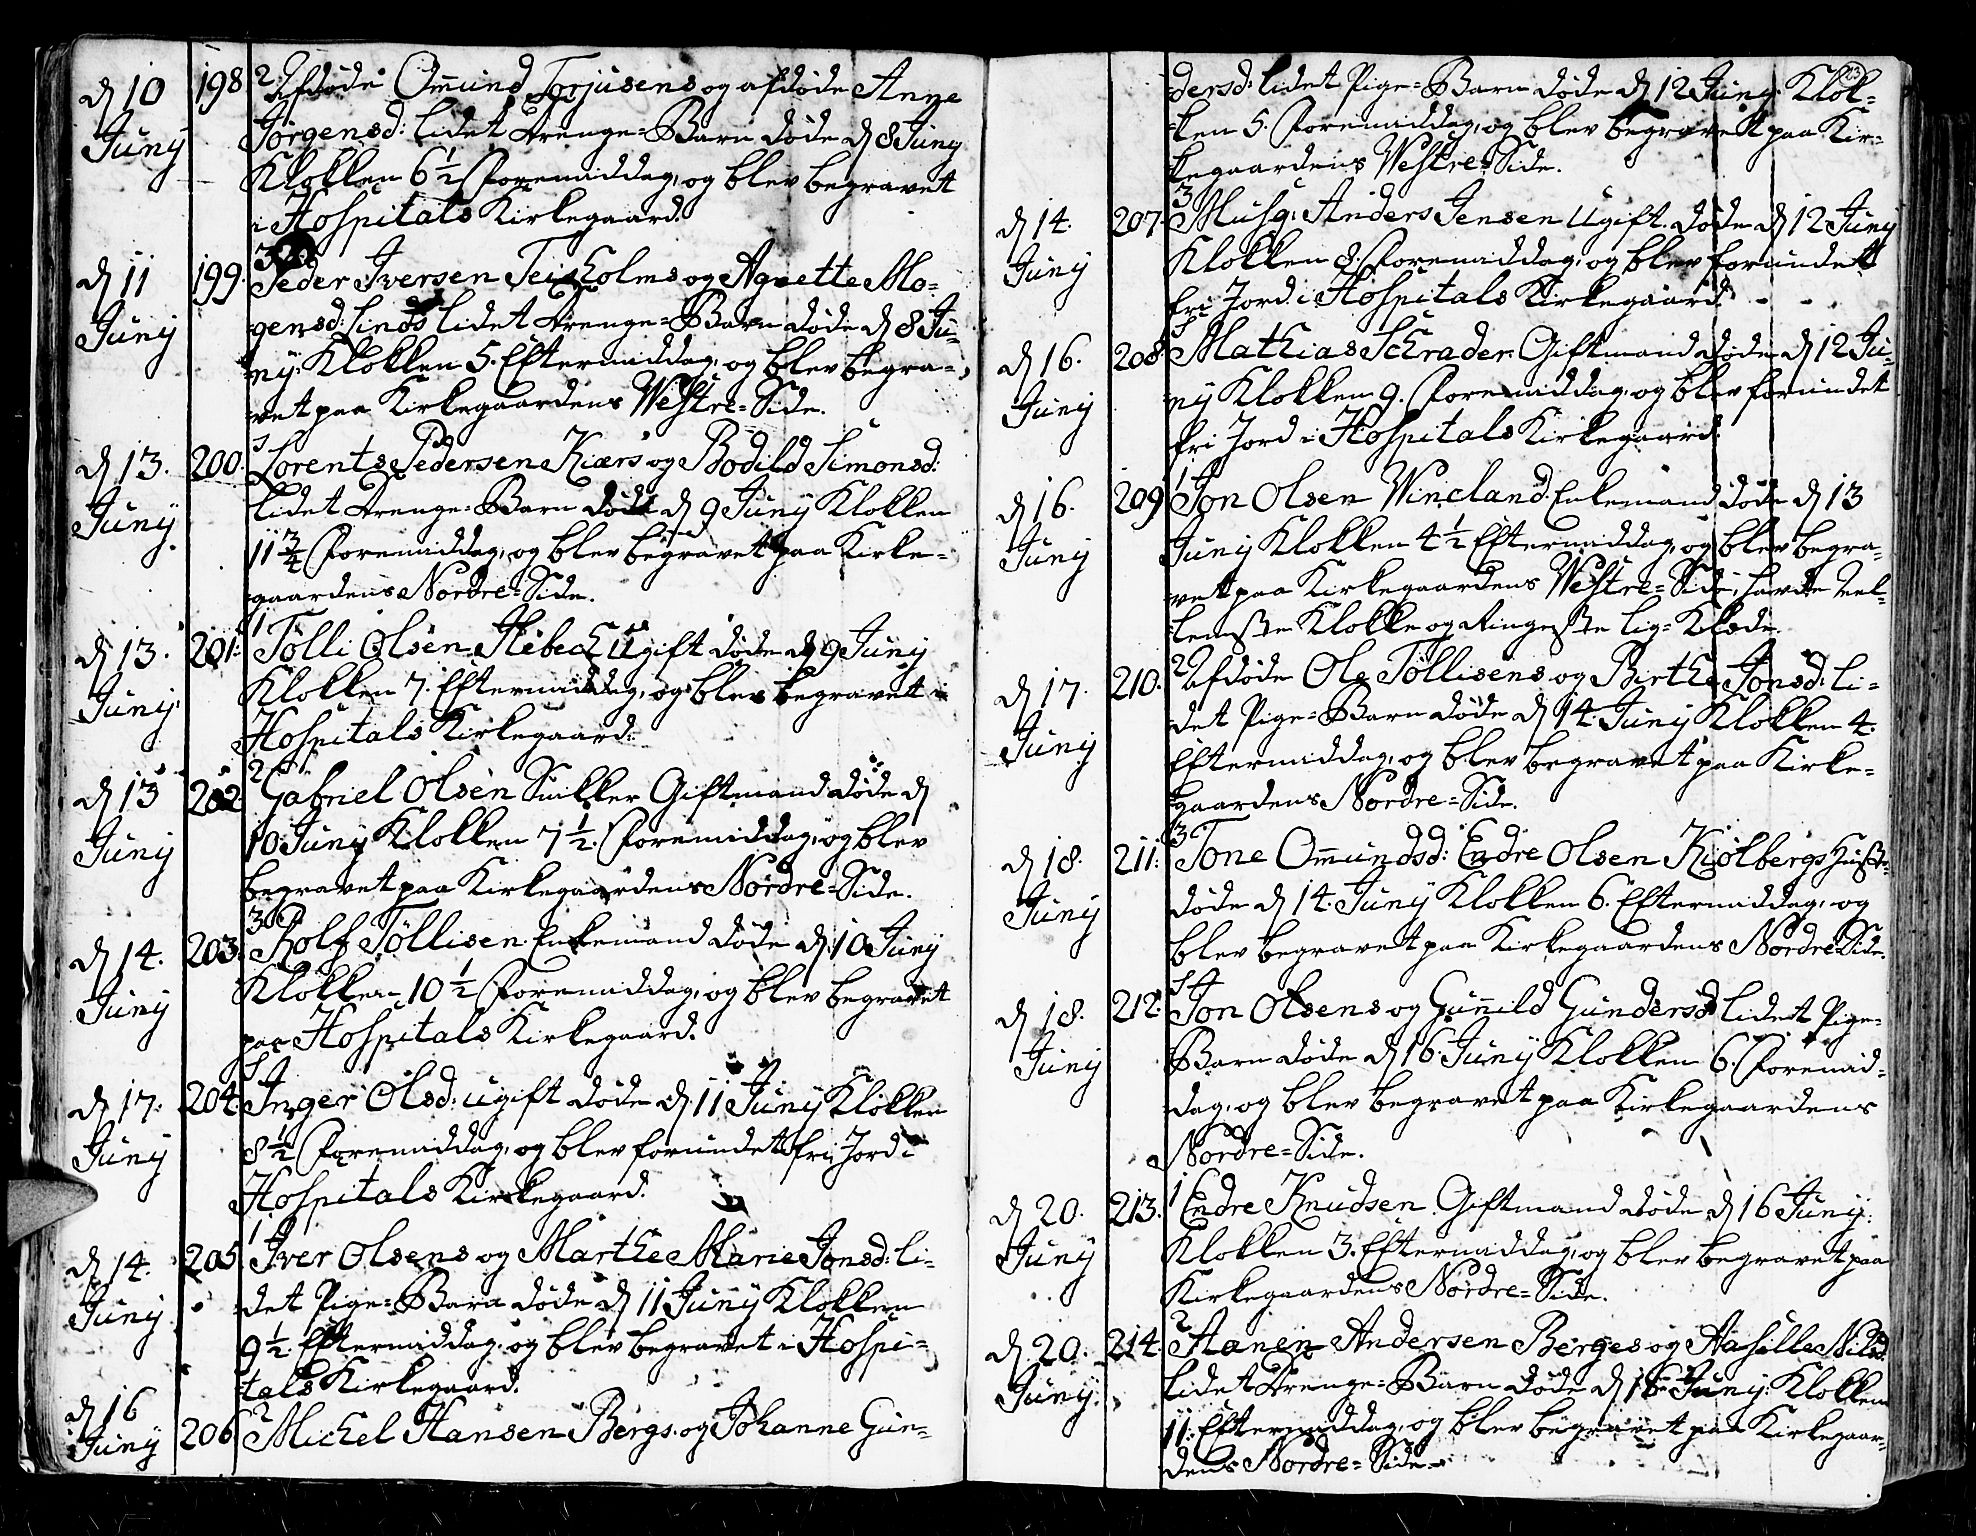 d 10 Junÿ 198 2 Afdøde Omund Torjusens og afdøde Anne
Jørgensd: lidet Drenge=Barn døde d 8 Junÿ
Klokken 6½ Foremiddag, og blev begravet
i Hospitals Kirkegaard.
d 11 Junÿ 199. 3 Peder Iversen Teisholms og Agnette Mo=
gensd: Linds lidet Drenge=Barn døde d 8 Ju=
nÿ: Klokken 5. Eftermiddag, og blev begra=
vet paa Kirkegaardens Westre=Side.
d 13. Junÿ. 200. S Lorents Pedersen Kiærs og Bodild Simonsd:
lidet Drenge=Barn døde d 9 Junÿ Klokken
11¾ Foremiddag, og blev begravet paa Kirke=
gaardens Nordre=Side.
d 13. Junÿ. 201. 1 Tølli Olsen Hebeck Ugift døde d 9 Junÿ
Klokken 7. Eftermiddag, og blev begravet i
Hospitals Kirkegaard.
d 13 Junÿ 202 2 Gabriel Olsen Snikker Giftmand døde d
10 Junÿ Klokken 7½. Foremiddag, og blev
begravet paa Kirkegaardens Nordre=Side.
d 14. Junÿ 203. 3 Rolf Tøllisen Enkemand døde d 10 Junÿ
Klokken 10½ Foremiddag, og blev begravet
paa Hospitals Kirkegaard.
d 17. Junÿ 204. St Inger Olsd: ugift døde d 11 Junÿ Klokken
8½ Foremiddag, og blev forundet fri Jord i
Hospitals Kirkegaard.
d 14. Junÿ 205. 1 Iver Olsens og Marthe Marie Jonsd: li=
det Pige=Barn døde d 11 Junÿ Klokken
9½. Eftermiddag, og blev begravet i Hospi=
tals Kirkegaard.
d 16 Junÿ 206 2 Michel Hansen Bergs og Johanne Gun=
dersd: lidet Pige=Barn døde d 12 Junÿ Klok=
ken 5. Foremiddag, og blev begravet paa Kir=
kegaardens Westre=Side.
d 14. Junÿ 207. 3 Musq: Anders Jensen Ugift døde d 12 Junÿ
Klokken 8. Foremiddag, og blev forundet
fri Jord i Hospitals Kirkegaard.
d 16. Junÿ 208 S Mathias Schrader Giftmand døde d 12 Ju=
nÿ Klokken 9. Foremiddag, og blev forundet
fri Jord i Hospitals Kirkegaard.
d 16. Junÿ 209 1 Jon Olsen Wincland Enkemand døde d 13
Junÿ Klokken 4½ Eftermiddag, og blev begra=
vet paa Kirkegaardens Westre=Side, havde Mel=
lemste Klokke og Ringeste Lig=Klæde.
d 17. Junÿ 210. 2 Afdøde Ole Tøllisens og Birthe Jonsd: li=
det Pige=Barn døde d 14. Junÿ Klokken 4.
Eftermiddag, og blev begravet paa Kirke=
gaardens Nordre=Side.
d 18. Junÿ 211. 3 Tone Omundsd: Endre Olsen Kiølbergs Hustr:
døde d 14. Junÿ Klokken 6. Eftermiddag, og
blev begravet paa Kirkegaardens Nordre Side.
d 18. Junÿ 212. St Jon Olsens og Gunnild Gundersd lidet Pige=
Barn døde d 16. Junÿ Klokken 6. Foremid=
dag, og blev begravet paa Kirkegaardens
Nordre=Side.
d 20. Junÿ 213. 1 Endre Knudsen Giftmand døde d 16 Junÿ:
Klokken 3. Eftermiddag, og blev begravet paa
Kirkegaardens Nordre=Side.
d 20. Junÿ. 214. 2 Hanen Andersen Berges og Aasille Nilsd:
lidet Drenge=Barn døde d 16 Junÿ: Klokken
11. Eftermiddag, og blev begravet paa Kirkegaar=
dens Nordre=Side.